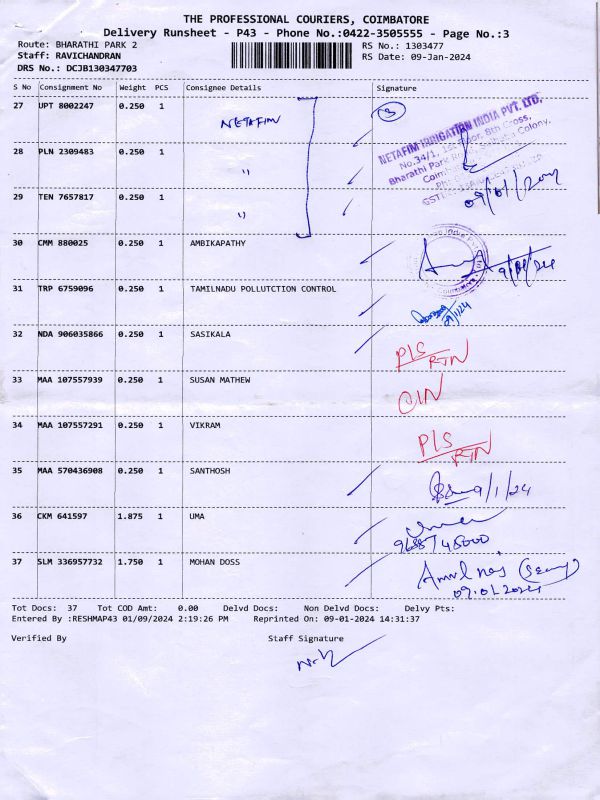 THE PROFESSIONAL COURIERS, COIMBATORE
Delivery Runsheet - P43 - Phone No.:0422-3505555 - Page No.:3
Route: BHARATHI PARK 2 RS No.: 1303477
Staff: RAVICHANDRAN RS Date: 09-Jan-2024
DRS No.: DCJB130347703
S No Consignment No Weight PCS Consignee Details Signature
27 UPT 8002247 0.250 1 NETAFIM 3
NETAFIM IRRIGATION INDIA PVT. LTD.
No.34/1, 1st Floor, 8th Cross,
28 PLN 2309483 0.250 1 "
29 TEN 7657817 0.250 1 "
30 CMM 880025 0.250 1 AMBIKAPATHY
31 TRP 6759096 0.250 1 TAMILNADU POLLUTCTION CONTROL
32 NDA 906035866 0.250 1 SASIKALA P/S RTN
33 MAA 107557939 0.250 1 SUSAN MATHEW
34 MAA 107557291 0.250 1 VIKRAM P/S RTN
35 MAA 570436908 0.250 1 SANTHOSH 9/1/24
36 CKM 641597 1.875 1 UMA
37 SLM 336957732 1.750 1 MOHAN DOSS
09.01.2024
Tot Docs: 37 Tot COD Amt: 0.00 Delvd Docs: Non Delvd Docs: Delvy Pts:
Entered By :RESHMAP43 01/09/2024 2:19:26 PM Reprinted On: 09-01-2024 14:31:37
Verified By Staff Signature